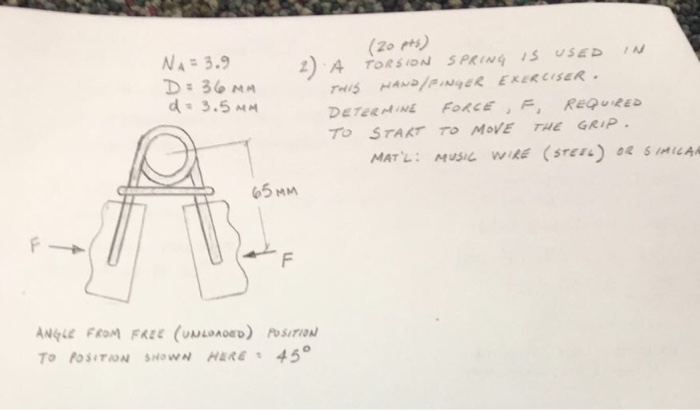 NA = 3.9
D = 36 MM
d = 3.5 MM
(20 pts)
2) A TORSION SPRING IS USED IN
THIS HAND/FINGER EXERCISER.
DETERMINE FORCE, F, REQUIRED
TO START TO MOVE THE GRIP.
MAT'L: MUSIC WIRE (STEEL) OR SIMILAR
65 MM
F
F
ANGLE FROM FREE (UNLOADED) POSITION
TO POSITION SHOWN HERE = 45°